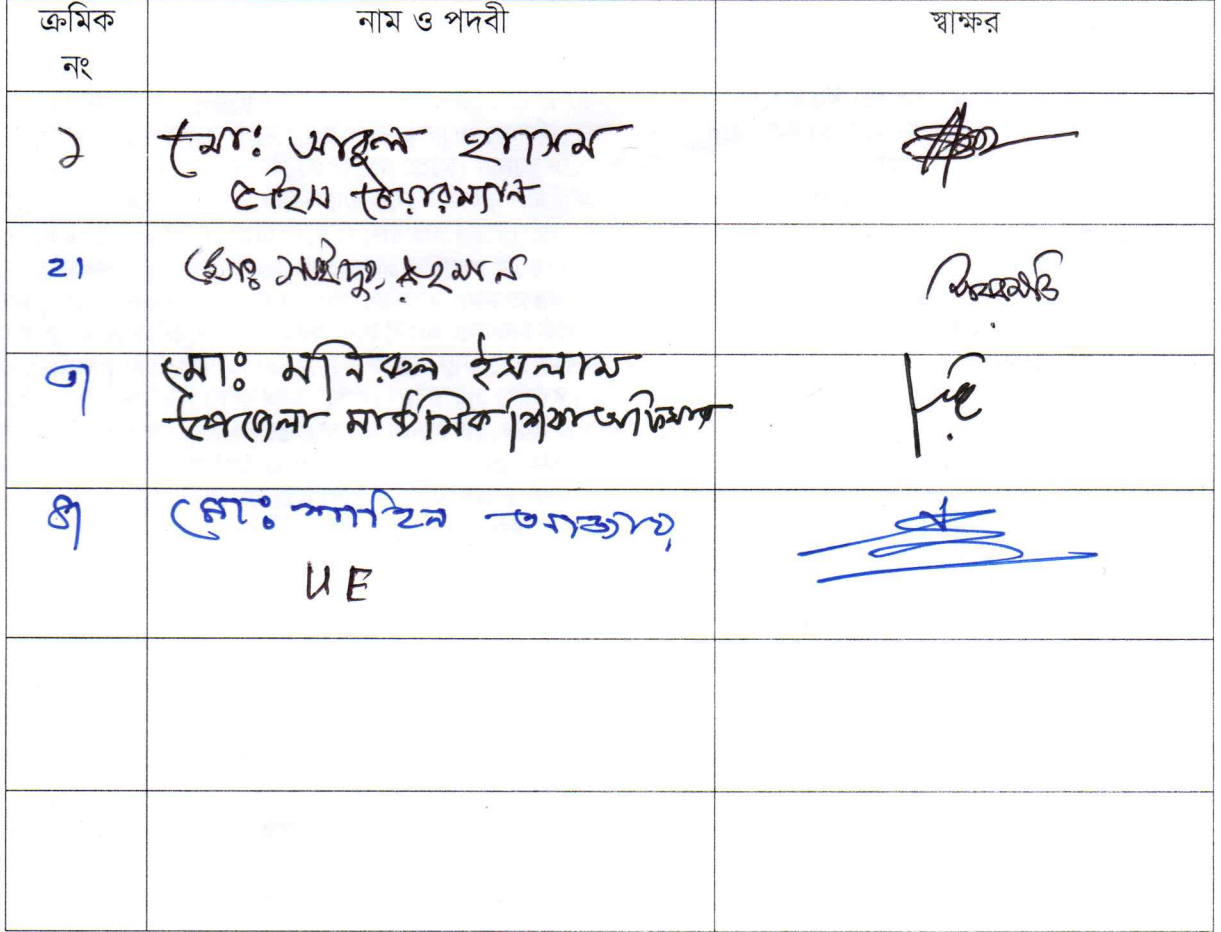 ক্রমিক নাম ও পদবী স্বাক্ষর
নং
১ মোঃ আবুল হাসেম
ভাইস চেয়ারম্যান
২। মোঃ সাইদুর রহমান
৩। মোঃ মনিরুল ইসলাম
উপজেলা মাধ্যমিক শিক্ষা অফিসার
৪। মোঃ শাহিন
UE